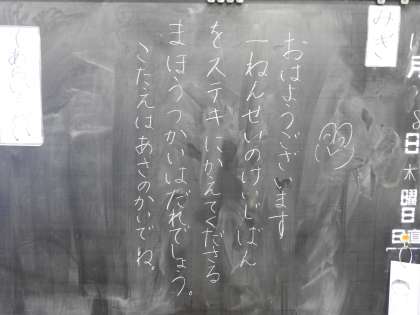 みぎ
月
8日
木
曜日
日直
おはようございます
一ねんせいのけいじばん
をステキにかえてくださる
まほうつかいはだれでしょう。
こたえはあさのかいでね。